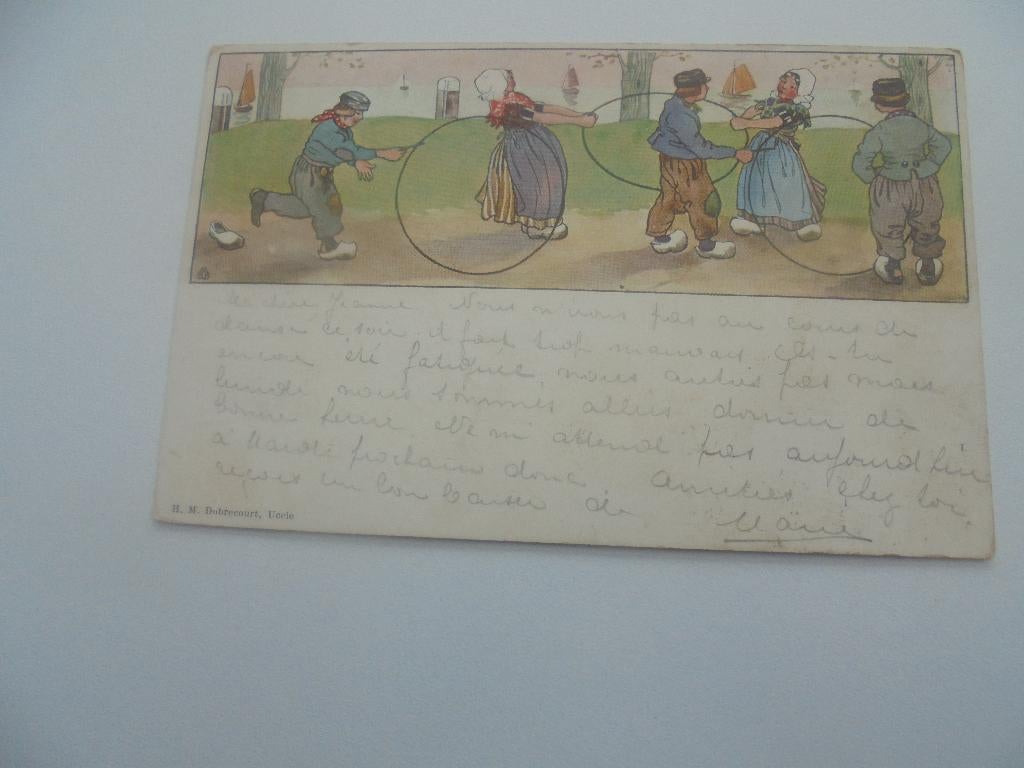 Ma chère Jeanne. Nous n'irons pas au cours de
danse ce soir, il fait trop mauvais. Es-tu
encore été fatiguée, nous autres pas mais
lundi nous sommes allées dormir de
bonne heure. Ne m'attend pas aujourd'hui
à Mardi prochain donc. Amitiés chez toi,
reçois un bon baiser de
Marie
H. M. Dobrecourt, Uccle